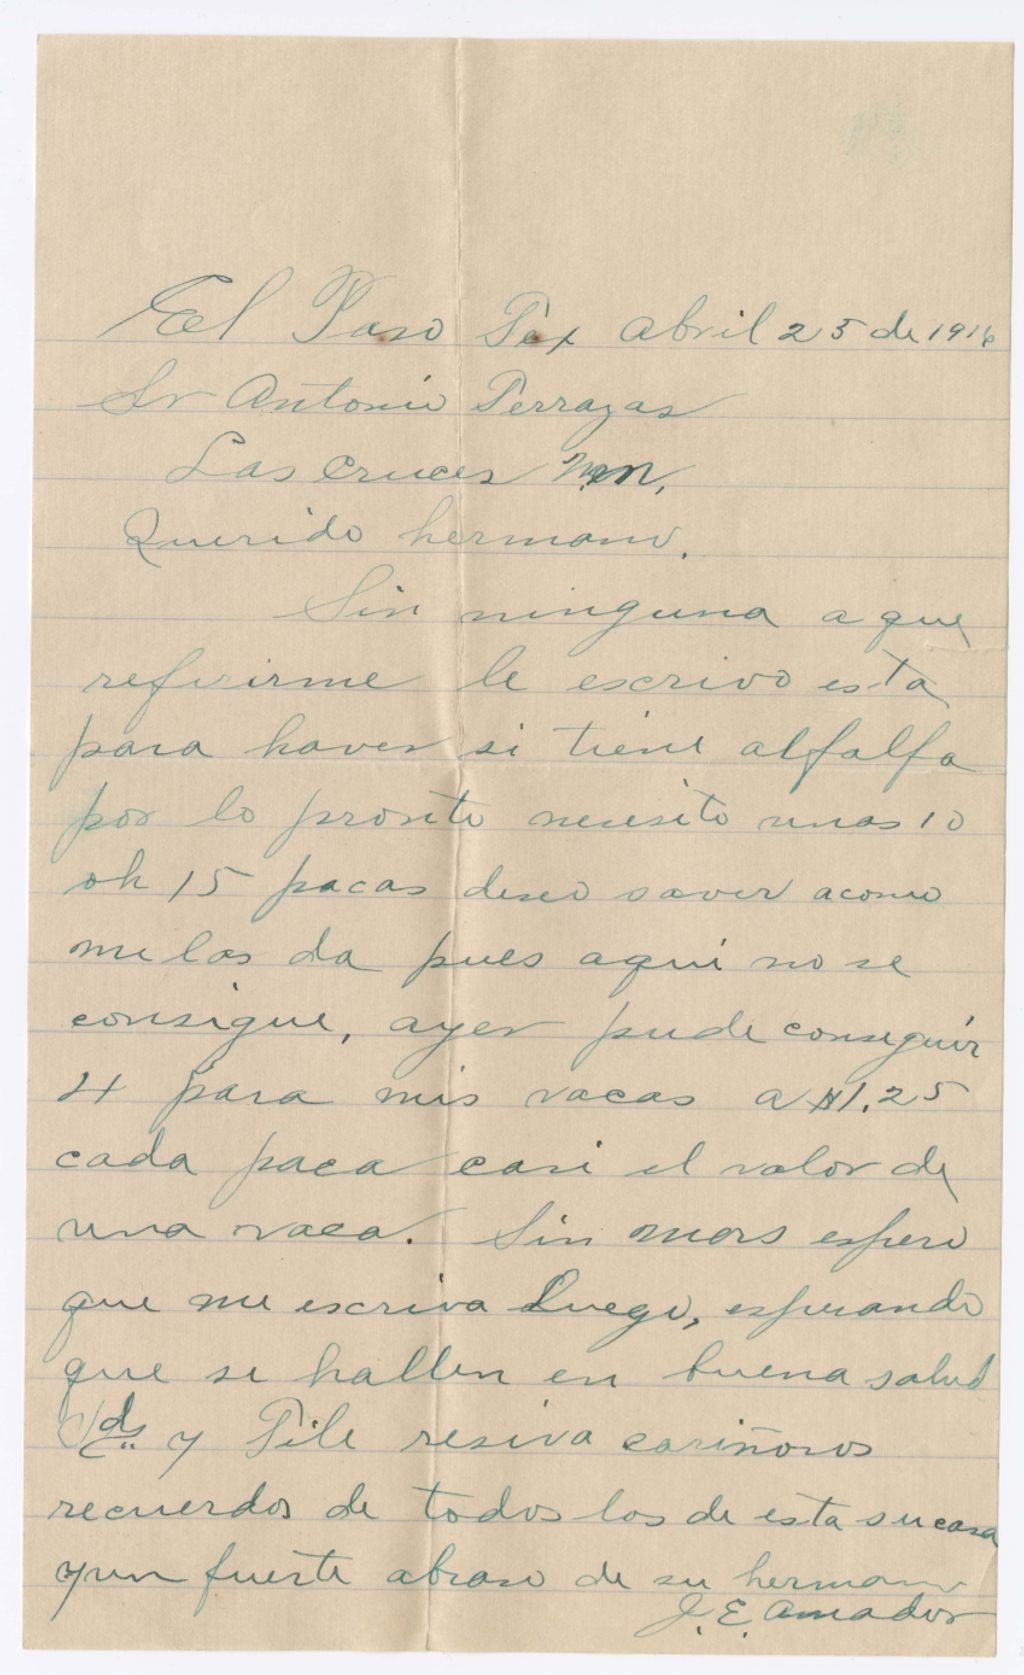 El Paso Tex Abril 25 de 1916
Sr Antonio Terrazas
Las Cruces N.M.
Querido hermano.
Sin ninguna a que
referirme le escrivo esta
para haver si tiene alfalfa
por lo pronto necesito unas 10
oh 15 pacas deseo saver acomo
me las da pues aqui no se
consigue, ayer pude conseguir
4 para mis vacas a $1.25
cada paca casi el valor de
una vaca. Sin mas espero
que me escriva Luego, esperando
que se hallen en buena salud
Uds. y Pile resiva cariñosos
recuerdos de todos los de esta su casa
y un fuerte abraso de su hermano
J. E. Amador